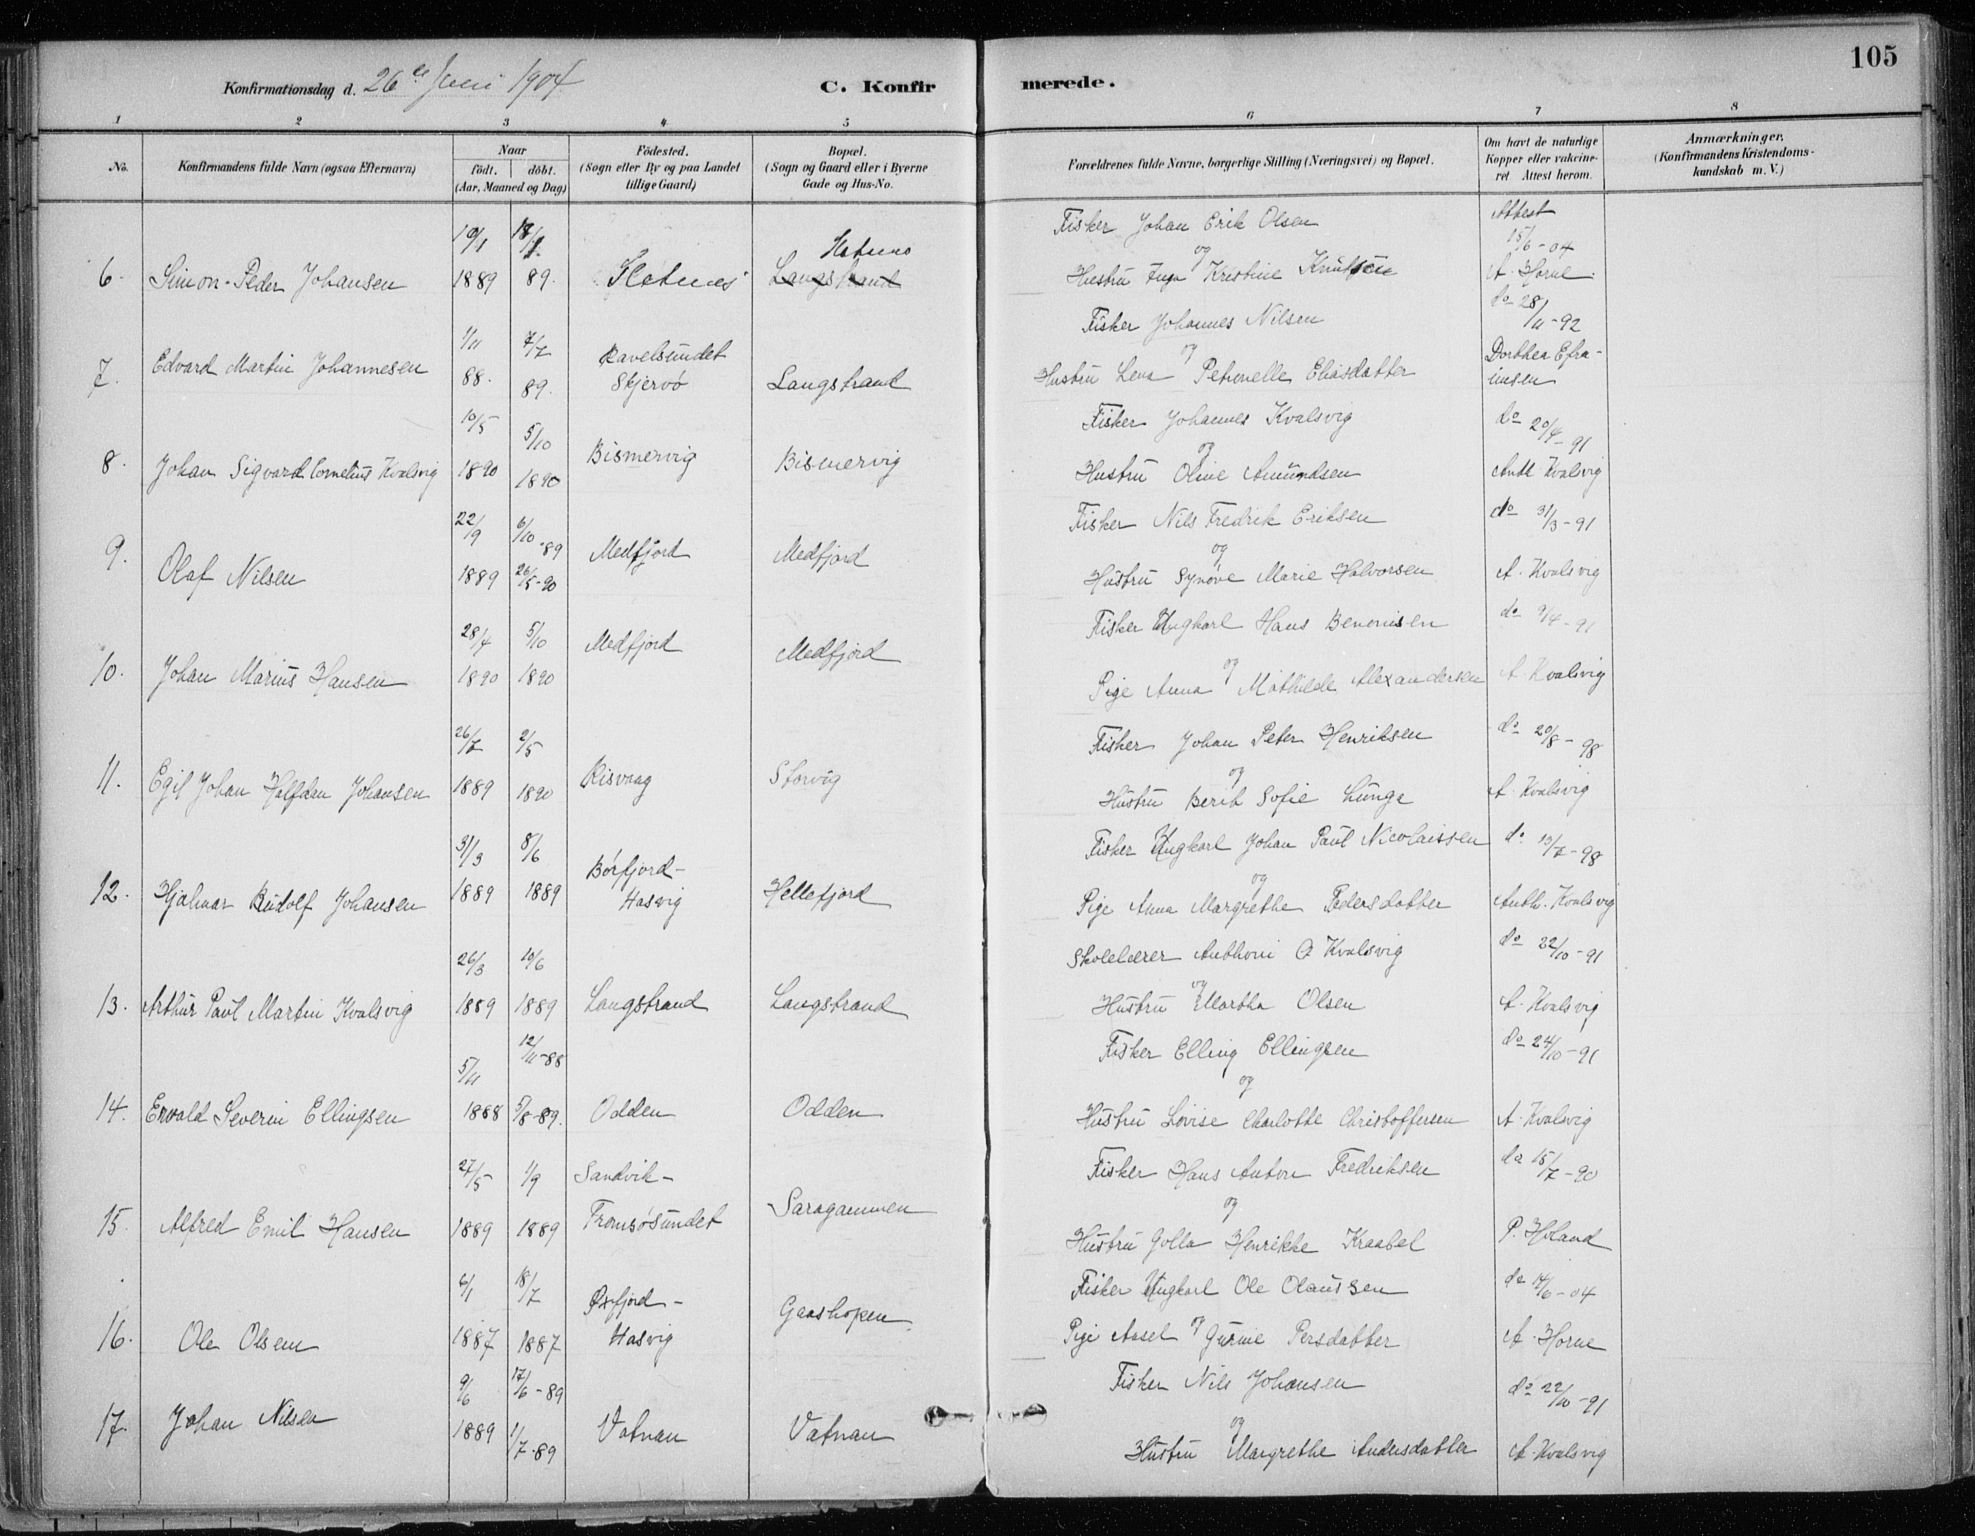 105
Konfirmationsdag d. 26de Juni 1904
C. Konfirmerede.
1 2 3 4 5 6 7 8
No.
Konfirmandens fulde Navn (ogsaa Efternavn)
Naar
födt. döbt.
(Aar, Maaned og Dag)
Födested.
(Sogn eller By og paa Landet
tillige Gaard)
Bopæl.
(Sogn og Gaard eller i Byerne
Gade og Hus-No.
Forældrenes fulde Navne, borgerlige Stilling (Næringsvei) og Bopæl.
Om havt de naturlige
Kopper eller vakcine-
ret Attest herom.
Anmærkninger.
(Konfirmandens Kristendoms-
kundskab m. V.)
19/1 18/1 Hatnes Fisker Johan Erik Olsen Attest
og 15/6-04
6. Simon-Peder Johansen 1889 89. Langstrand Hustru Inga Kristine Knutsen A. Horne
Fisker Johannes Nilsen do 28/11-92
1/11 7/7 Ravelsundet og Dorthea Efra-
7. Edvard Martin Johannesen 88. 89. Skjervö Langstrand Hustru Lena Petronelle Eliasdatter imsen
10/5 5/10 Fisker Johannes Kvalsvig do 20/4-91
og
8. Johan Sigvard Cornelius Kvalsvig 1890 1890 Bismervig Bismervig Hustru Oline Amundsen Anth Kvalsvig
22/9 6/10-89 Fisker Nils Fredrik Eriksen do 31/3-91
og
9. Olaf Nilsen 1889 26/5-90 Medfjord Medfjord Hustru Synöve Marie Halvorsen A. Kvalsvig
28/4 5/10 Fisker Ungkarl Hans Benonisen do 9/4-91
og
10. Johan Marius Hansen 1890 1890 Medfjord Medfjord Pige Anna Mathilde Alexandersen A. Kvalsvig
26/7 2/5 Fisker Johan Peter Henriksen do 20/8-98
og
11. Egil Johan Halfdan Johansen 1889 1890 Risvaag Storvig Hustru Berit Sofie Lunge A. Kvalsvig
31/3 8/6 Börfjord- Fisker Ungkarl Johan Paul Nicolaissen do 13/7-98
og
12. Hjalmar Rudolf Johansen 1889 1889 Hasvig Hellefjord Pige Anna Margrethe Pedersdatter Anth. Kvalsvig
26/3 10/6 Skolelærer Anthoni O Kvalsvig do 22/10-91
og
13. Arthur Paul Martin Kvalsvig 1889 1889 Langstrand Langstrand Hustru Martha Olsen A. Kvalsvig
5/11 12/11-88 Fisker Elling Ellingsen do 24/10-91
og
14. Ervald Severin Ellingsen 1888 5/8-89. Odden Odden Hustru Lovise Charlotte Christoffersen A. Kvalsvig
27/5 1/9 Sandvik- Fisker Hans Anton Fredriksen do 15/7-90
og
15. Alfred Emil Hansen 1889 1889 Tromsösundet Saragammen Hustru Golla Henrikke Kraabel P. Holand
6/1 18/7 Öxfjord- Fisker Ungkarl Ole Olaussen do 14/6-04
og
16. Ole Olsen 1887 1887 Hasvig Gaashopen Pige Aasel Gurine Persdatter A. Horne
9/6 17/6-89 Fisker Nils Johansen do 22/10-91
og
17. Johan Nilsen 1889 1/7-89 Vatnan Vatnan Hustru Margrethe Andersdatter A. Kvalsvig